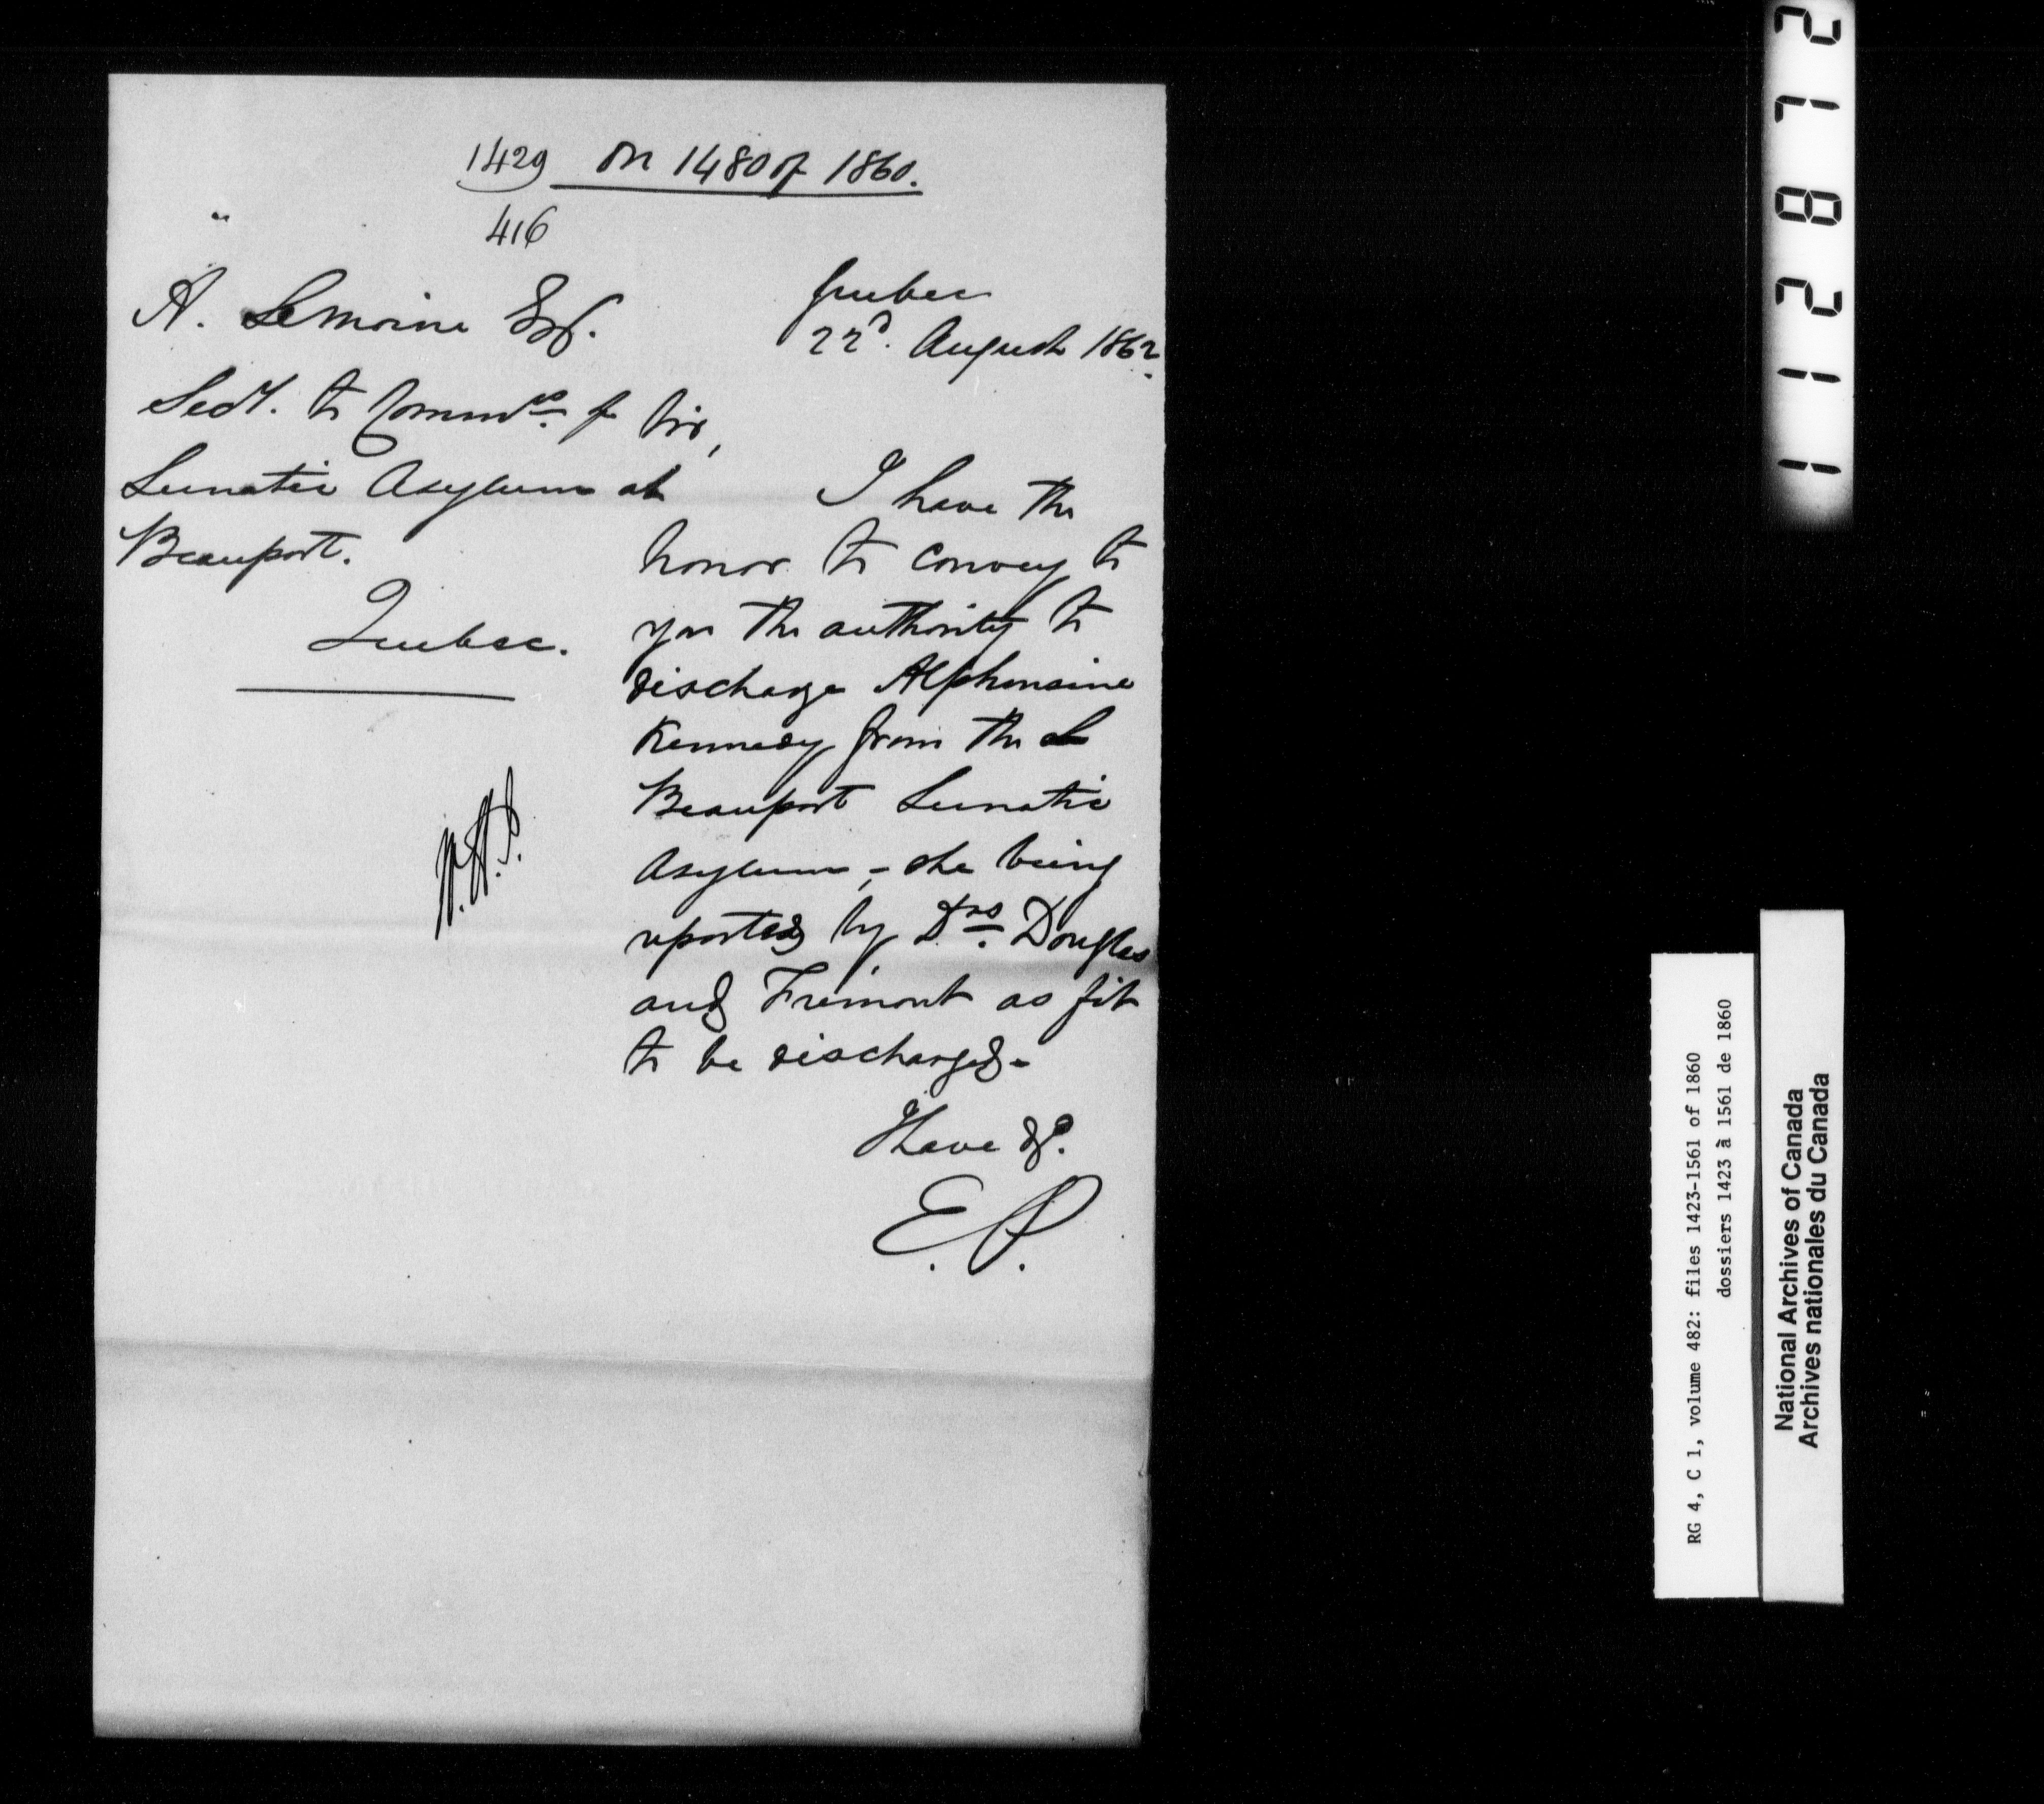 1429 On 1480 of 1860.
416
Quebec
22d. August 1862.
A. Lemoine Esq.
Secy. to Commrs. of
Lunatic Asylum at
Beauport.
Quebec.
Sir,
I have the
honor to convey to
you the authority to
discharge Alphonsine
Kennedy from the
Beauport Lunatic
Asylum, - she being
reported by Drs. Douglas
and Fremont as fit
to be discharged -
I have &c.
E. P.
112872
RG 4, C 1, volume 482: files 1423-1561 of 1860
dossiers 1423 à 1561 de 1860
National Archives of Canada
Archives nationales du Canada